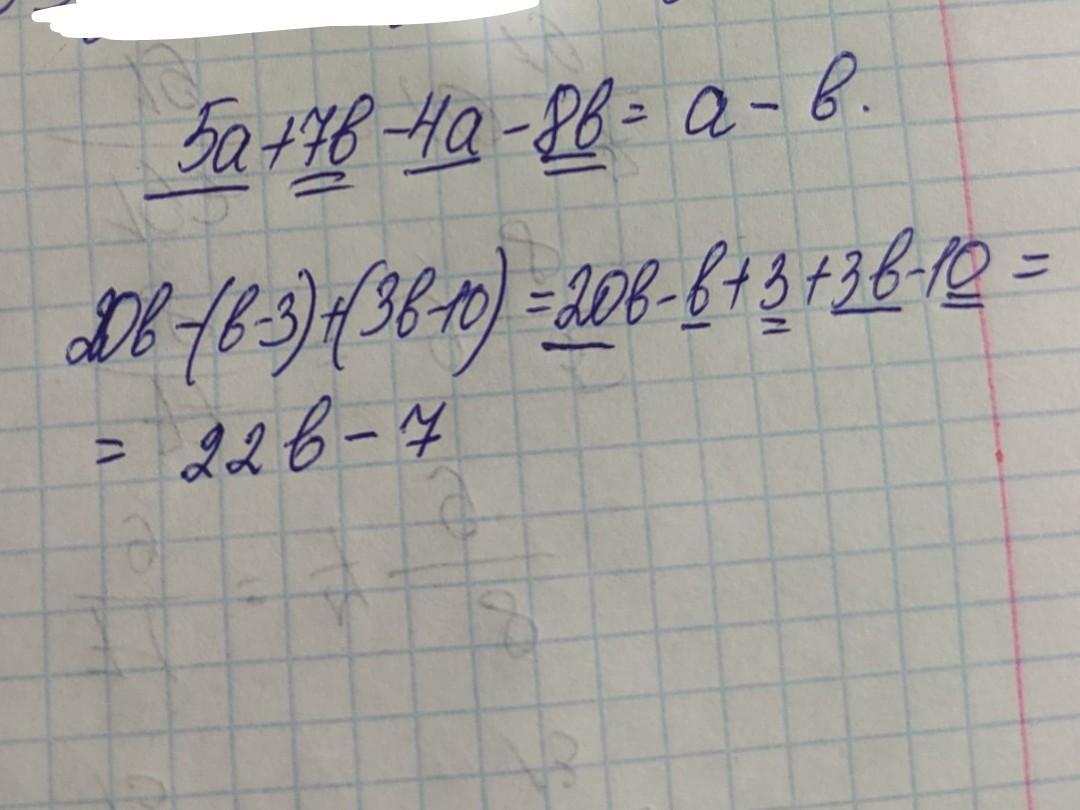 5a+7в-4a-8в= a - в.
20в-(в-3)+(3в-10)=20в-в+3+3в-10=
= 22в-7